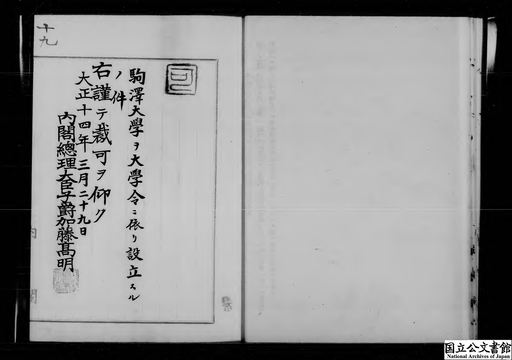 十九
可
駒澤大學ヲ大學令ニ依リ設立スル
ノ件
右謹テ裁可ヲ仰ク
大正十四年三月二十九日
內閣總理大臣子爵加藤高明
国立公文書館
National Archives of Japan